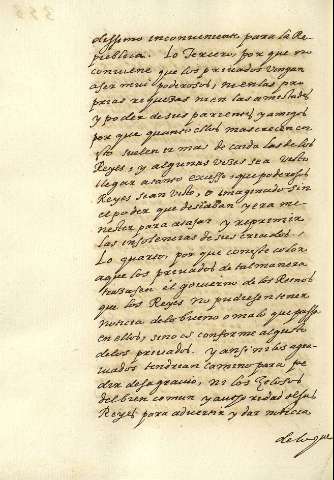 dissimo inconveniente para la Re-
publica. Lo Tercero, por que no
conviene que los privados vengan
a ser mui poderosos, ni en las pro-
prias riquezas ni en las amistades
y poder de sus parientes, y amigos
por que quanto ellos mas crecen en
esto suelen ir mas de caida las de los
Reyes, y algunas vezes se a visto
llegar a tanto excesso, que poderosos
Reyes se an visto, o imaginado sin
el poder que deseaban y era me-
nester para atajar y reprimir
las insolencias de sus criados.
Lo quarto, por que con este color
a que los privados de tal manera
travasen el govierno de los Reinos
que los Reyes no pudiessen tener
noticia de lo bueno o malo que passa
en ellos, sino es conforme al gusto
de los privados. y ansi ni los agra-
viados tendrian camino para pe-
dir desagravio, ni los zelosos
del bien comun y autoridad de sus
Reyes para advertir y dar noticia
de lo que